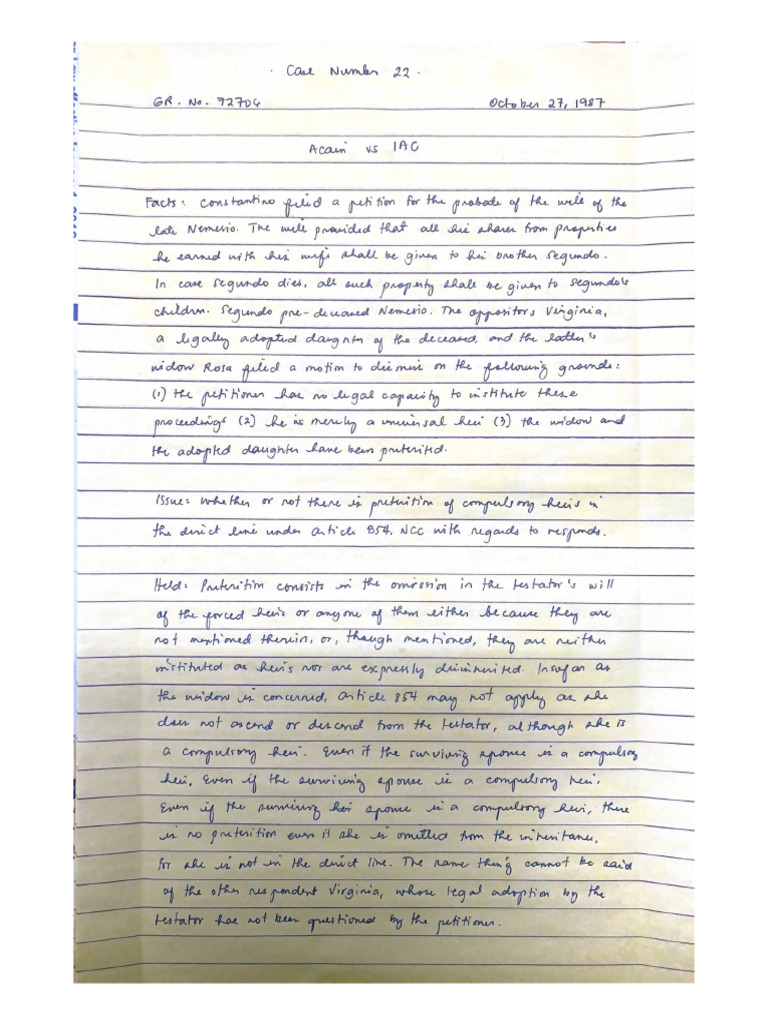 Case Number 22.
GR. No. 72706 October 27, 1987
Acain vs IAC
Facts: Constantino filed a petition for the probate of the will of the
late Nemesio. The will provided that all his shares from properties
he earned with his wife shall be given to his brother Segundo.
In case Segundo dies, all such property shall be given to Segundo's
children. Segundo pre-deceased Nemesio. The oppositors Virginia,
a legally adopted daughter of the deceased, and the latter's
widow Rosa filed a motion to dismiss on the following grounds:
(1) the petitioner has no legal capacity to institute these
proceedings (2) he is merely a universal heir (3) the widow and
the adopted daughter have been preterited.
Issue: whether or not there is preterition of compulsory heirs in
the direct line under article 854, NCC with regards to responds.
Held: Preterition consists in the omission in the testator's will
of the forced heirs or anyone of them either because they are
not mentioned therein, or, though mentioned, they are neither
instituted as heirs nor are expressly disinherited. Insofar as
the widow is concerned, article 854 may not apply as she
does not ascend or descend from the testator, although she is
a compulsory heir. Even if the surviving spouse is a compulsory
heir, Even if the surviving spouse is a compulsory heir.
Even if the surviving heir spouse is a compulsory heir, there
is no preterition even if she is omitted from the inheritance,
for she is not in the direct line. The same thing cannot be said
of the other respondent Virginia, whose legal adoption by the
testator has not been questioned by the petitioner.